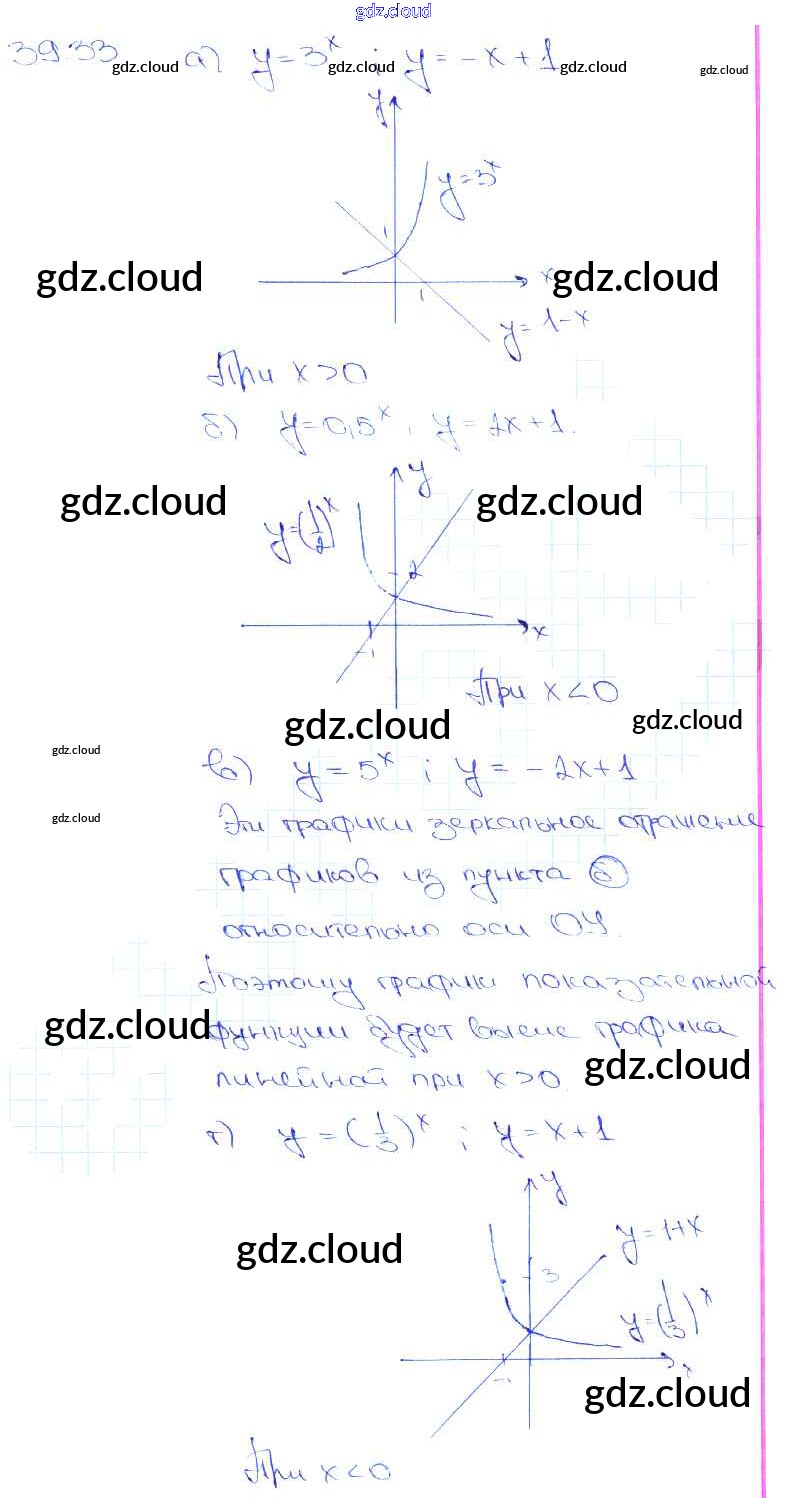 gdz.cloud
39.33 а) y = 3^x ; y = -x + 1
gdz.cloud gdz.cloud gdz.cloud gdz.cloud
y
y=3^x
1
gdz.cloud x gdz.cloud
1
y = 1-x
При x>0
б) y=0,5^x ; y = 2x+1.
y
gdz.cloud gdz.cloud
y=(1/2)^x
2
x
-1
При x<0
gdz.cloud gdz.cloud
gdz.cloud
в) y = 5^x ; y = -2x+1
gdz.cloud
Эти графики зеркальное отражение
графиков из пункта б
относительно оси OY.
Поэтому график показательной
gdz.cloud функции будет выше графика
gdz.cloud
линейной при x>0.
г) y = (1/3)^x ; y = x+1
y
y=1+x
gdz.cloud
3
y=(1/3)^x
x
-1
gdz.cloud
При x<0